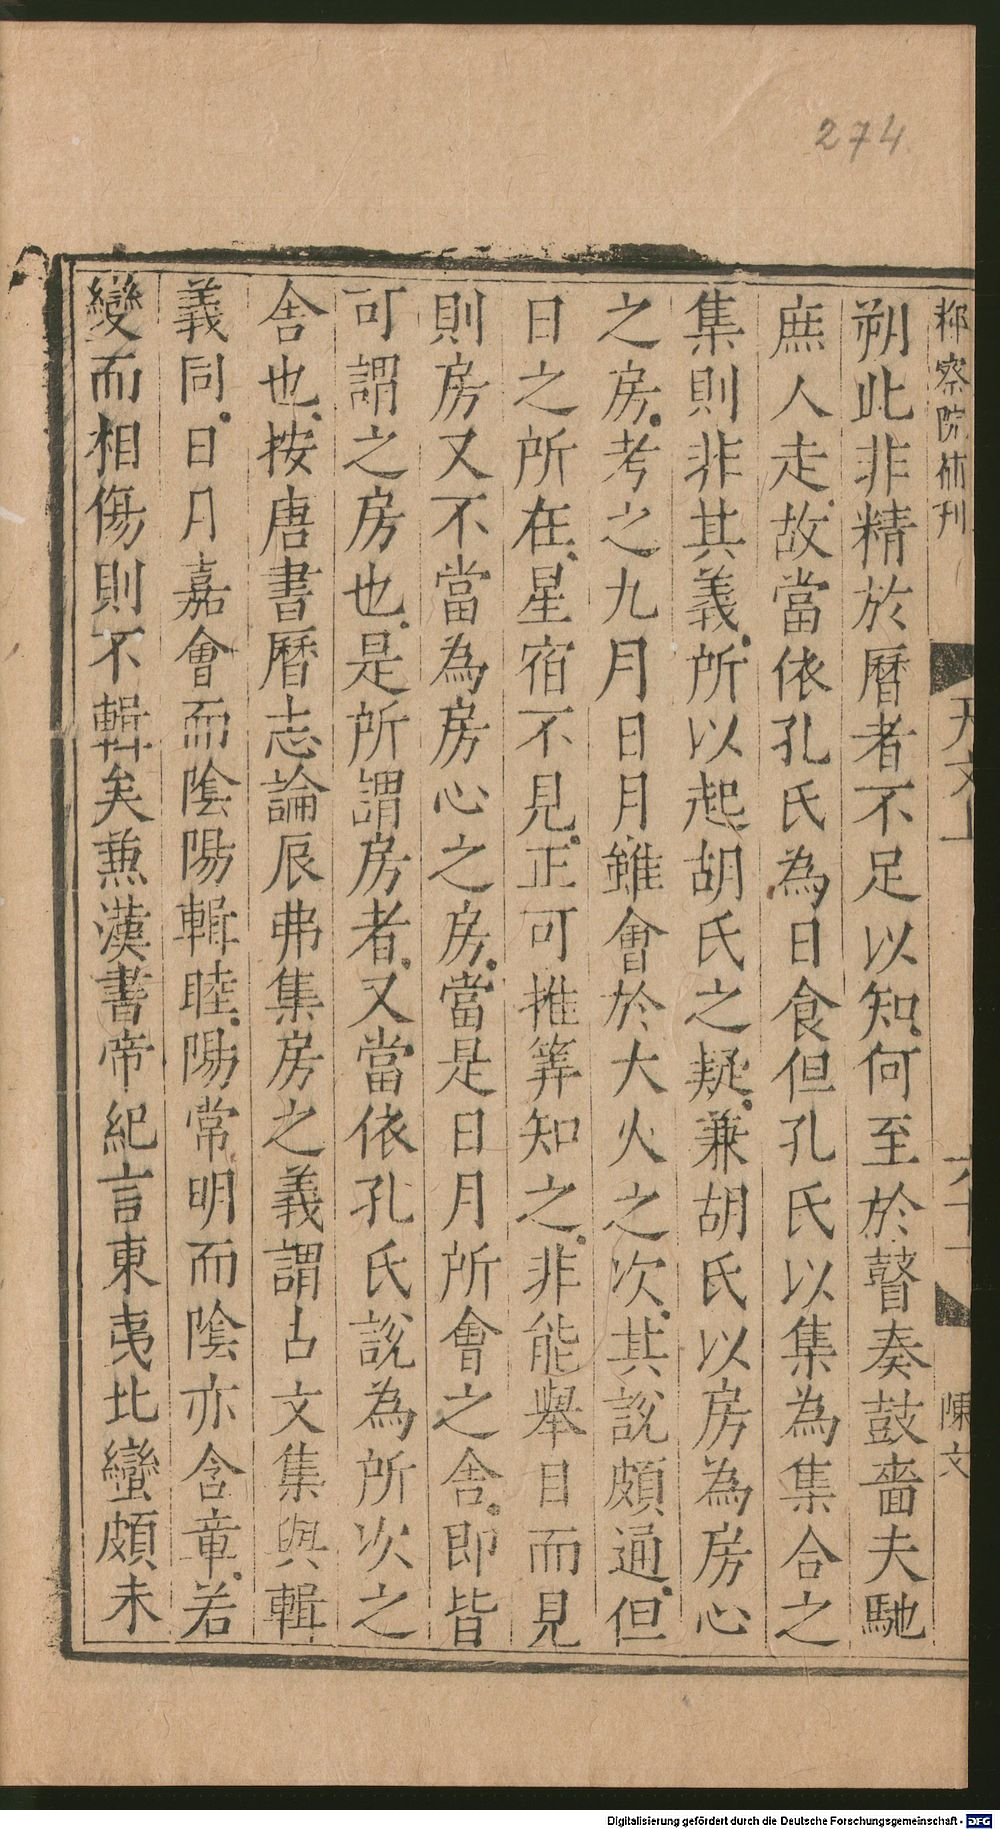 274
都察院術刊 天文上 六十一 陳文
朔此非精於曆者不足以知何至於瞽奏鼓嗇夫馳
庶人走故當依孔氏為日食但孔氏以集為集合之
集則非其義所以起胡氏之疑兼胡氏以房為房心
之房考之九月日月雖會於大火之次其說頗通但
日之所在星宿不見正可推筭知之非能舉目而見
則房又不當為房心之房當是日月所會之舎即皆
可謂之房也是所謂房者又當依孔氏說為所次之
舎也按唐書曆志論辰弗集房之義謂古文集與輯
義同日月嘉會而陰陽輯睦陽常明而陰亦含章若
變而相傷則不輯矣兼漢書帝紀言東夷北蠻頗未
Digitalisierung gefördert durch die Deutsche Forschungsgemeinschaft - DFG